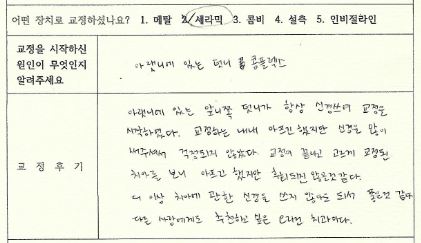 어떤 장치로 교정하셨나요? 1. 메탈 2. 세라믹 3. 콤비 4. 설측 5. 인비절라인
교정을 시작하신
원인이 무엇인지
알려주세요
아랫니에 있는 덧니 콤플렉스
교정후기
아랫니에 있는 앞니쪽 덧니가 항상 신경쓰여 교정을
시작하였다. 교정하는 내내 아프긴 했지만 신경을 많이
써주셔서 걱정되지 않았다. 교정이 끝나고 고르게 교정된
치아를 보니 아프고 했지만 후회되진 않을것 같다.
더 이상 치아에 관한 신경을 쓰지 않아도 되서 좋은것 같다
다른 사람에게도 추천하고 싶은 치과이다.